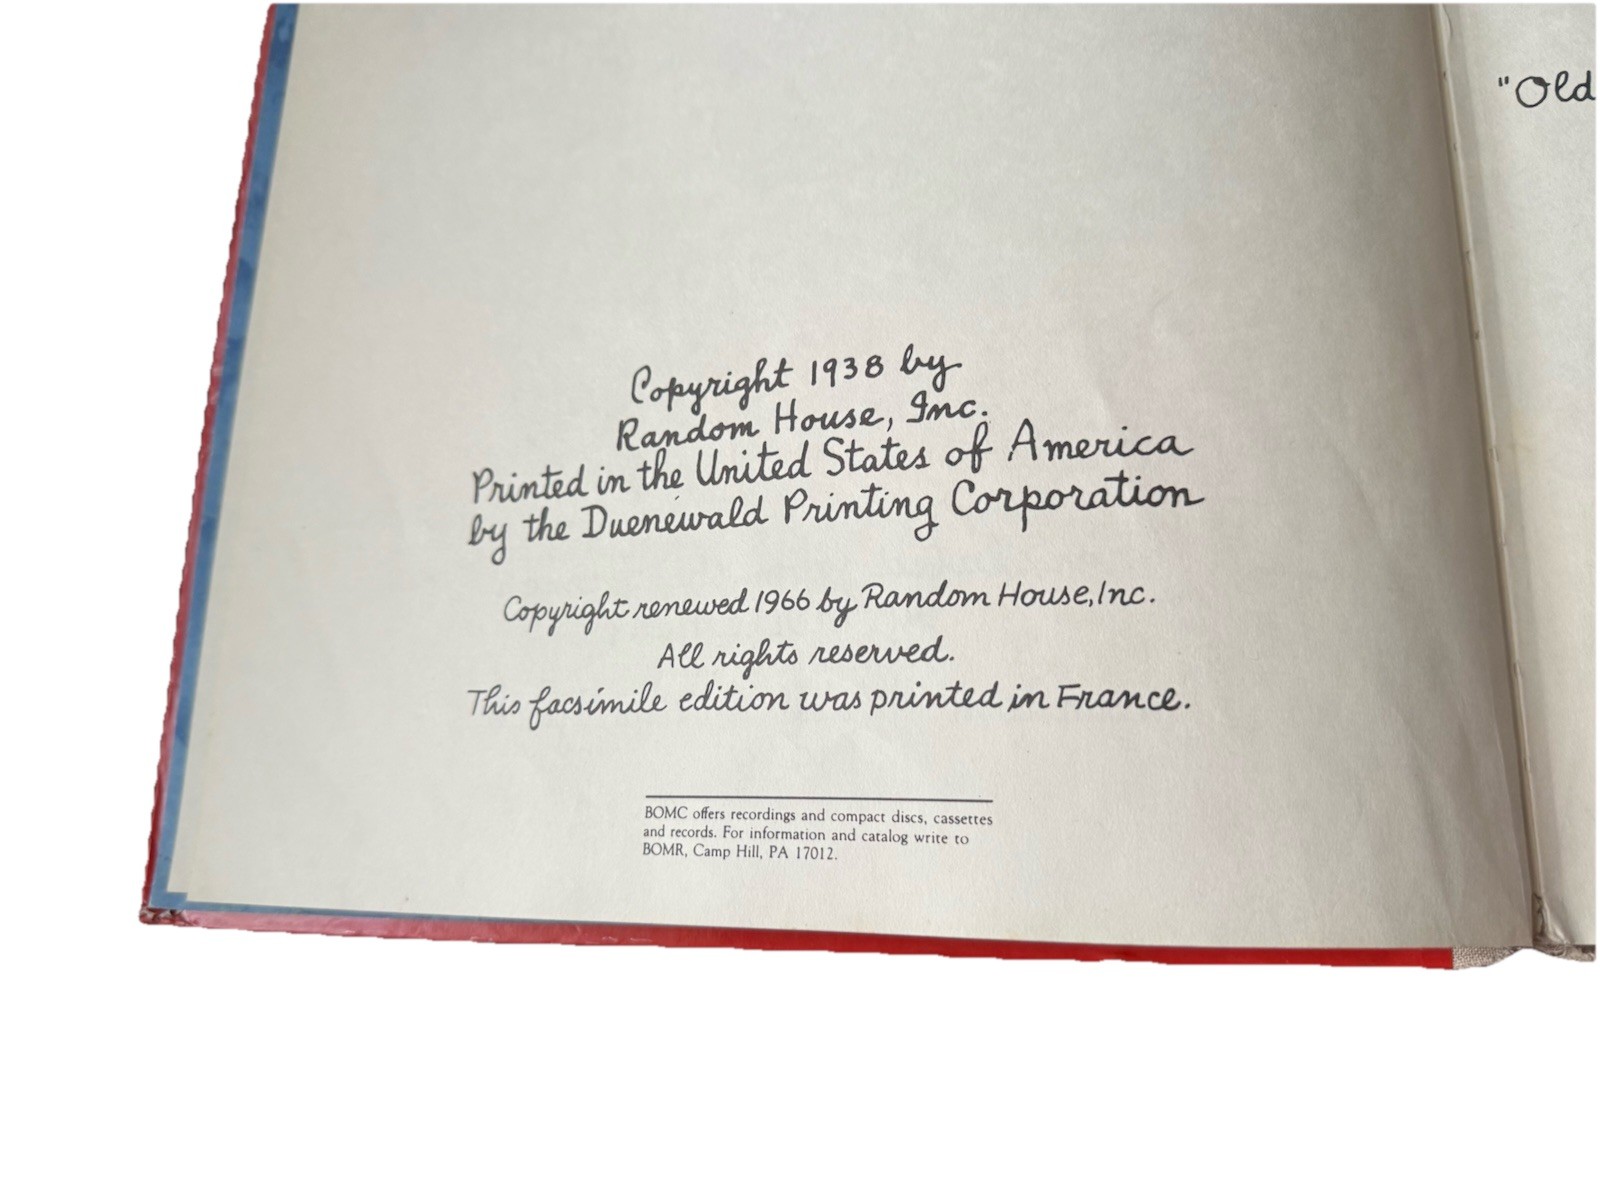 Copyright 1938 by
Random House, Inc.
Printed in the United States of America
by the Duenewald Printing Corporation
Copyright renewed 1966 by Random House, Inc.
All rights reserved.
This facsimile edition was printed in France.
BOMC offers recordings and compact discs, cassettes
and records. For information and catalog write to
BOMR, Camp Hill, PA 17012.
"Old